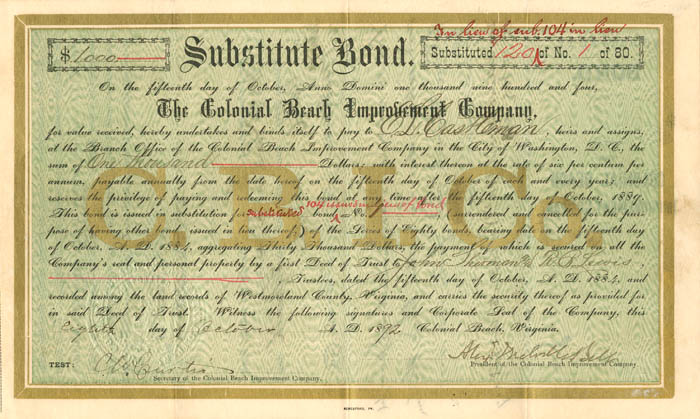 In lieu of sub. 104 in lieu
$1000
Substitute Bond.
Substituted 120 of No. 1 of 80.
On the fifteenth day of October, Anno Domini one thousand nine hundred and four,
The Colonial Beach Improvement Company,
for value received, hereby undertakes and binds itself to pay to C. D. Castleman, heirs and assigns,
at the Branch Office of the Colonial Beach Improvement Company in the City of Washington, D. C., the
sum of One Thousand Dollars; with interest thereon at the rate of six per centum per
annum, payable annually from the date hereof on the fifteenth day of October of each and every year; and
receives the privilege of paying and redeeming this bond at any time after the fifteenth day of October, 1889.
104 issued in lieu of bond
This bond is issued in substitution for substituted bond No. 1 (surrendered and cancelled for the pur-
pose of having other bond issued in lieu thereof,) of the Series of Eighty bonds, bearing date on the fifteenth day
of October, A. D. 1884, aggregating Thirty Thousand Dollars, the payment of which is secured on all the
Company's real and personal property by a first Deed of Trust to John Sherman &
Trustees, dated the fifteenth day of October, A. D. 1884, and
recorded among the land records of Westmoreland County, Virginia, and carries the security thereof as provided for
in said Deed of Trust. Witness the following signatures and Corporate Seal of the Company, this
Eighth day of October A. D. 1892 Colonial Beach, Virginia.
C. B. I. Co.
TEST: Curtis
Secretary of the Colonial Beach Improvement Company.
Melville Bell
President of the Colonial Beach Improvement Company.